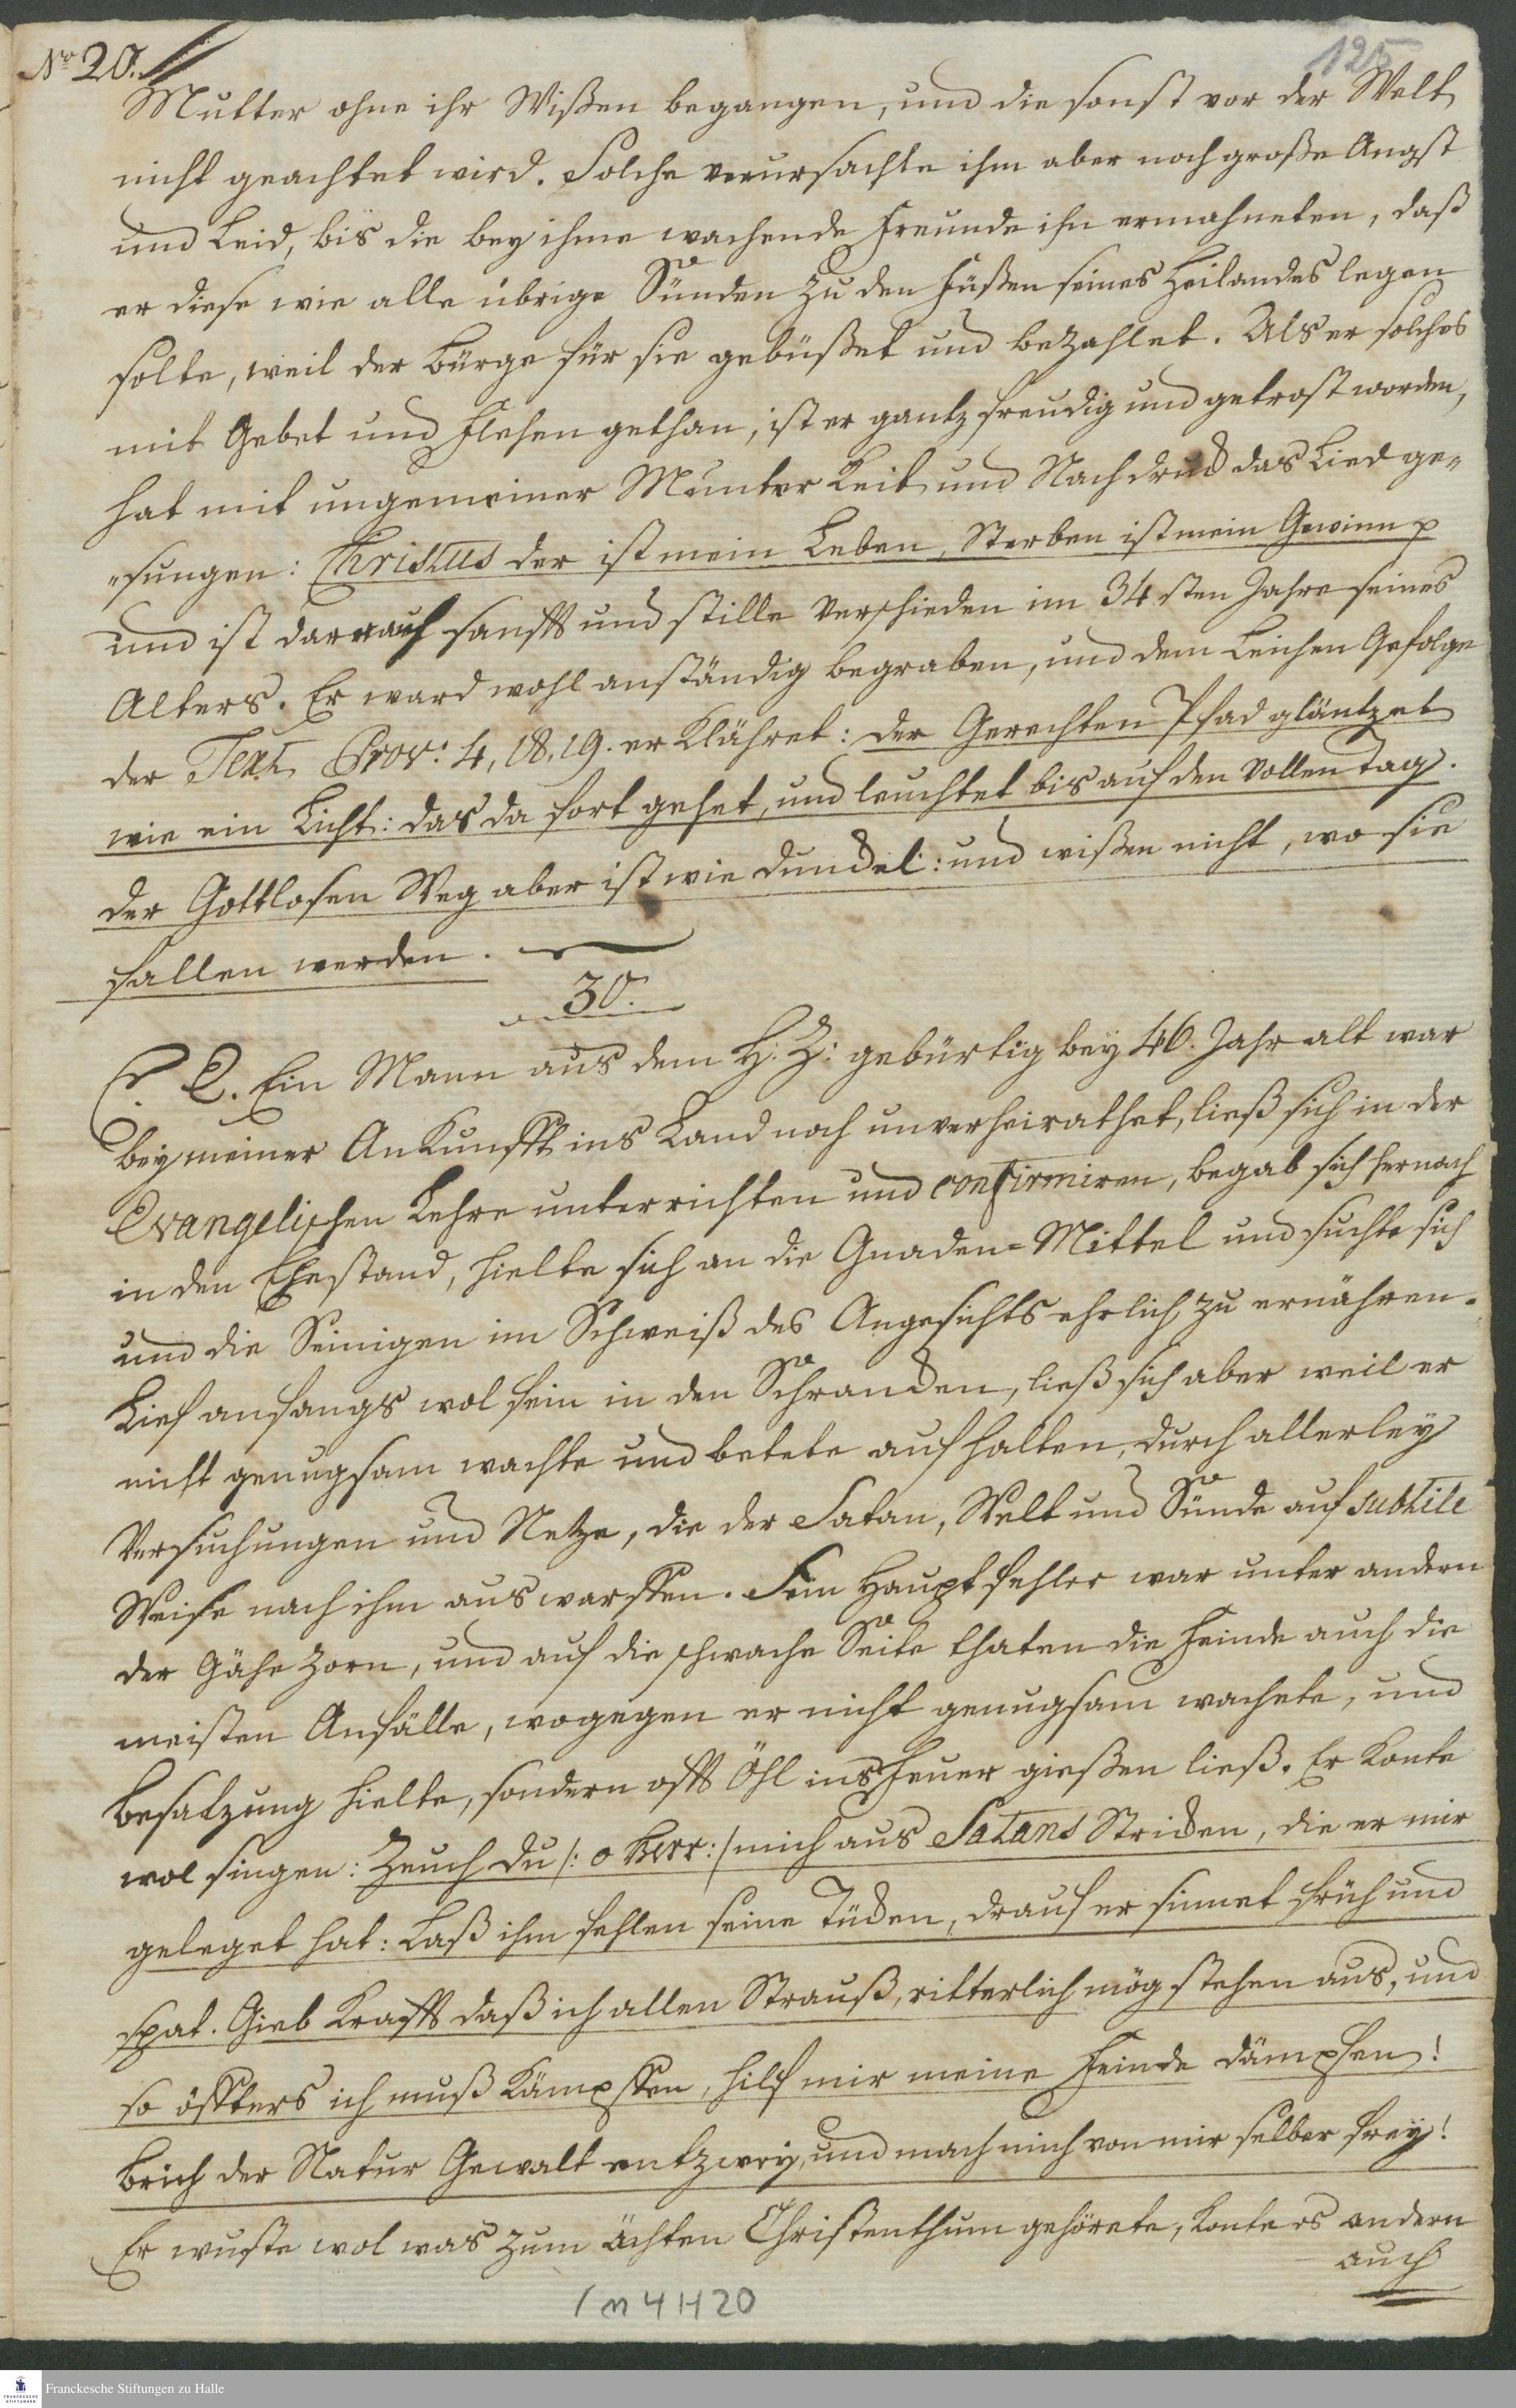 No 20.
125
Mutter ohne ihr Wißen begangen, und die sonst vor der Welt
nicht geachtet wird. Solche verursachte ihm aber noch große Angst
und Leid, bis die bey ihme wachende Freunde ihn ermahneten, daß
er diese wie alle übrige Sünden zu den Füßen seines Heilandes legen
solte, weil der Bürge für sie gebüßet und bezahlet. Als er solches
mit Gebet und Flehen gethan, ist er gantz freudig und getrost worden,
hat mit ungemeiner Munterkeit und Nachdruck das Lied ge„
„sungen: Christus der ist mein Leben, Sterben ist mein Gewinn
und ist darauf sanfft und stille verschieden im 34sten Jahre seines
Alters. Er ward wohl anständig begraben, und dem Leichen Gefolge
der Text Prov: 4, 18.19. erklähret: der Gerechten Pfad gläntzet
wie ein Licht: das da fort gehet, und leuchtet bis auf den vollen Tag.
der Gottlosen Weg aber ist wie dunckel: und wißen nicht, wo sie
fallen werden.
30.
Ein Mann aus dem H: Z: gebürtig bey 46. Jahr alt war
bey meiner Ankunfft ins Land noch unverheirathet, ließ sich in der
Evangelischen Lehre unterrichten und confirmiren, begab sich hernach
in den Ehestand, hielte sich an die Gnaden-Mittel und suchte sich
und die Seinigen im Schweiß des Angesichts ehrlich zu ernähren.
Lief anfangs wol fein in den Schrancken, ließ sich aber weil er
nicht genugsam wachte und betete aufhalten, durch allerley
Versuchungen und Netze, die der Satan, Welt und Sünde auf subtile
Weise nach ihm auswarffen. Sein Hauptfehler war unter andern
der Gähe Zorn, und auf die schwache Seite thaten die Feinde auch die
meisten Anfälle, wogegen er nicht genugsam wachete, und
Besatzung hielte, sondern offt Öhl ins Feuer gießen ließ. Er konte
wol singen: Zeuch du /: o Herr :/ mich aus Satans Stricken, die er mir
geleget hat: Laß ihm fehlen seine Tücken, drauf er sinnet früh und
spat. Gieb Krafft daß ich allen Strauß, ritterlich mög stehen aus, und
so öffters ich muß kämpffen, hilf mir meine Feinde dämpfen!
Brich der Natur Gewalt entzwey, und mach mich von mir selber frey!
Er wuste wol was zum ächten Christenthum gehörete, konte es andern
auch
1 m 4 H 20
Franckesche Stiftungen zu Halle